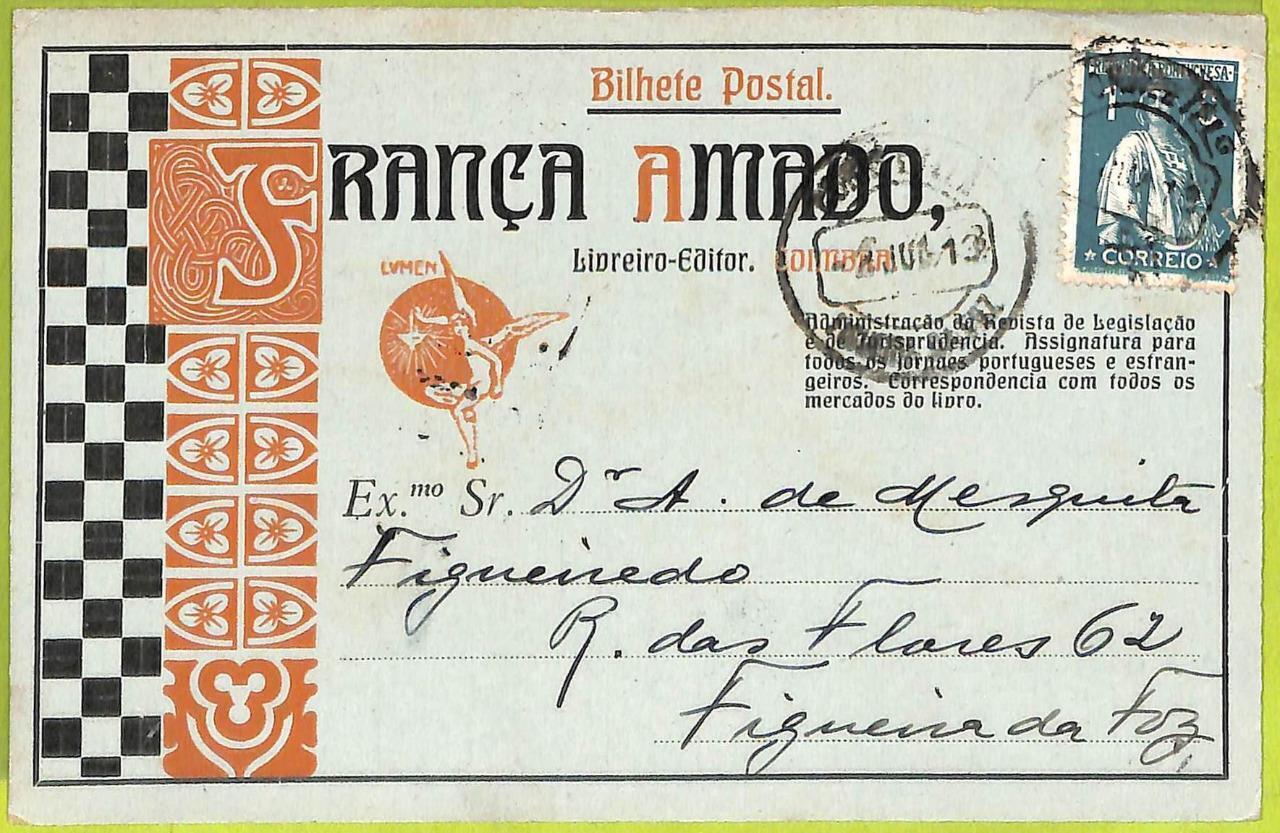 Bilhete Postal.
FRANÇA AMADO,
Livreiro-Editor. COIMBRA
LVMEN
REPUBLICA PORTUGUESA
1 C
CORREIO
JUL 13
Administração da Revista de Legislação
e de Jurisprudencia. Assignatura para
todos os jornaes portugueses e estran-
geiros. Correspondencia com todos os
mercados do livro.
Ex.mo Sr. Dr A. de Mesquita
Figueiredo
R. das Flores 62
Figueira da Foz